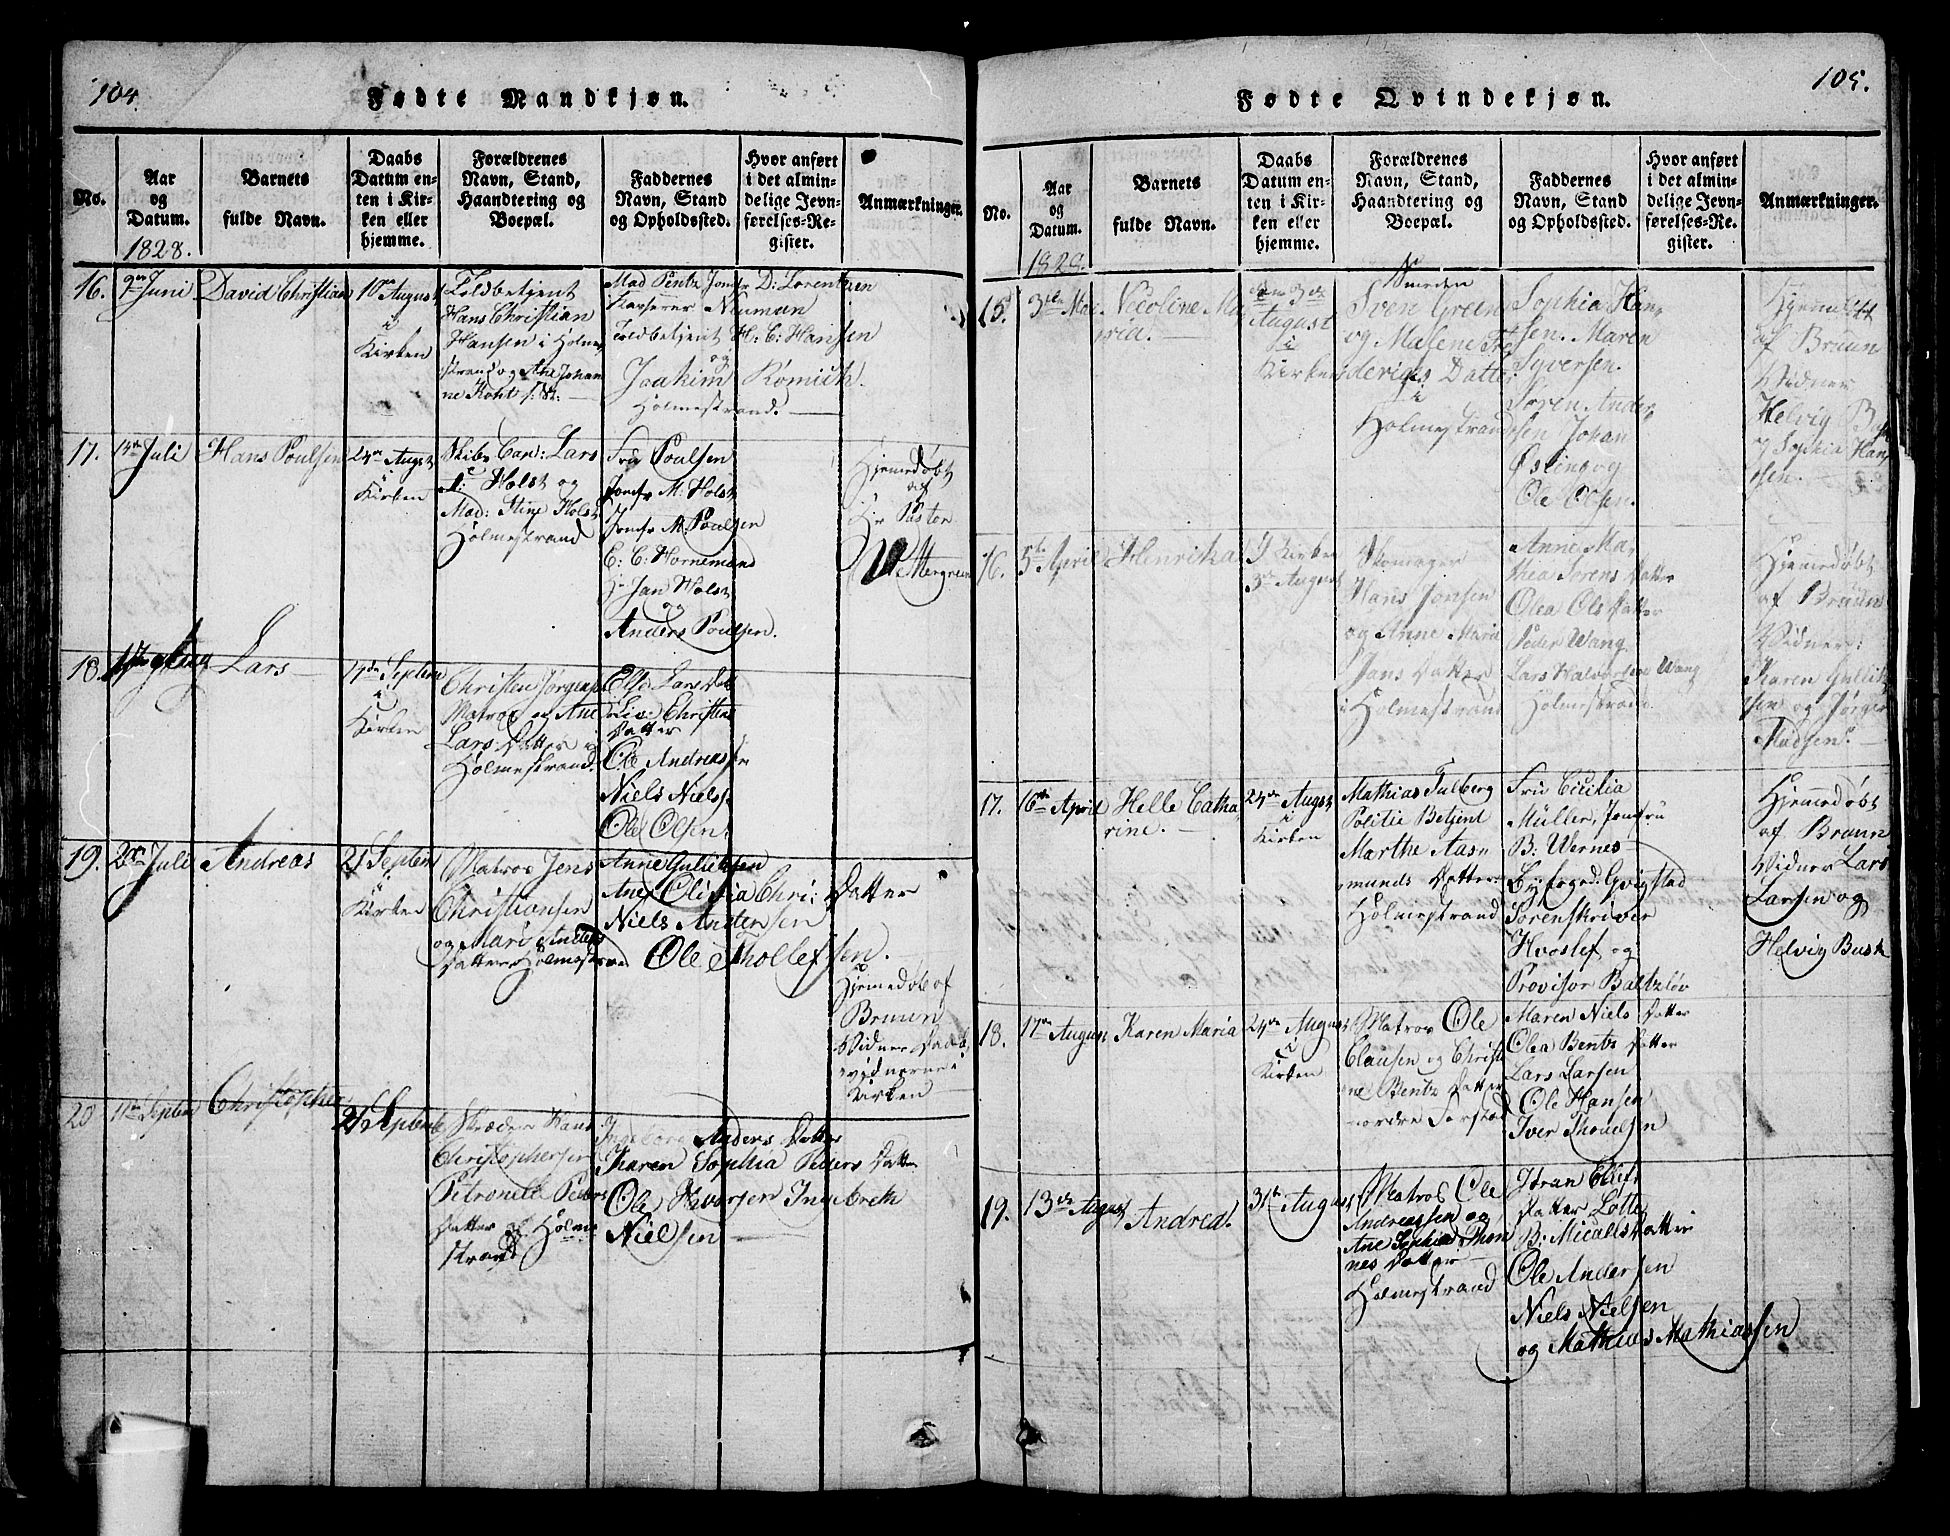 104.
Fødte Mandkjøn.
No.
Aar
og
Datum.
1828.
Barnets
fulde Navn.
Daabs
Datum en-
ten i Kir-
ken eller
hjemme.
Forældrenes
Navn, Stand,
Haandtering og
Boepæl.
Faddernes
Navn, Stand
og Opholdssted.
Hvor anført
i det almin-
delige Jevn-
førelses-Re-
gister.
Anmærkninger.
16.
Juni
David Christian
10de August
i
Kirken
Toldbetjent
Hans Christian
Hansen i Holme
strand og Ane Johan
ne
Mad Pentz Jomfr D: Lorentzen
Neuman
Toldbetjent H: C: Hansen
og
Joakim Römich.
Holmestrand.
17.
14de Juli
Hans Poulsen
24de Augst
i
Kirken
Skibs Cap: Lars
Holst og
Mad: Stine Holst
Holmestrand
Fru Poulsen
Jomfr M: Holst
Jomfr M. Poulsen
C: C: Hornemand
Hr Jan Holst
og
Anders Poulsen.
Hjemedøbt
af
Hr Pastor
Wettergreen
18.
Aug
Lars
14de Septem
i
Kirken
Christen Jörgens
Matros og Ane
Lars Datter
Holmestrand.
Else Lars Datt
Live Christens
Datter
Ole Andreasse
Niels Nielss
Ole Olsen.
19.
Juli
Andreas
21 Septem
i
Kirken
Matros Jens
Christiansen
og Mari Anders
Datter Holmestrand
Anne Gulliksen
Ane Olidia Chri: Datter
Niels Andersen
Ole Thollefsen.
Hjemedøbt af
Bruun
Vidner Daabs
vidnerne i
Kirken
20
11te Septem
Christopher
21 Septemb
Skræder Hans
Christophersen
Petronele Peders
Datter af Holme
strand
Ingeborg Anders Datter
Karen Sophia Peders Datter
Ole Havorsen Ingebreth
Nielsen
105.
Fødte Qvindekjøn.
No.
Aar
og
Datum.
1828.
Barnets
fulde Navn.
Daabs
Datum en-
ten i Kir-
ken eller
hjemme.
Forældrenes
Navn, Stand,
Haandtering og
Boepæl.
Faddernes
Navn, Stand
og Opholdssted.
Hvor anført
i det almin-
delige Jevn-
førelses-Re-
gister.
Anmærkninger.
15.
3die Mai
Nicoline Ma
ria.
den 3de
August
i
Kirken
Smeden
Sven Green
og Malene Fre
derichs Datter
i
Holmestrand
Sophia Han
sen. Maren
Syversen.
Søren Ander
sen Johan
Østling og
Ole Olsen.
Hjemedøbt
af Bruun
Vidner
Helvig Busk
og Sophia Han
sen.
16.
5te April
Henrika
I Kirken
3de August
Skomager
Hans Jonsen
og Anne Maria
Jans Datter
i Holmestrand
Anne Ma
thea Sørens Datter
Olea Ols Datter
Peder Wang
Lars Halvorsen Wang
Holmestrand.
Hjemedøbt
af Bruun
Vidner:
Karen Gullik
sen og Jørgen
Madsen.
17.
16de April
Helle Catha
rine.
24de Augst
i
Kirken
Mathias Fulberg
Politie Betjent
Marthe Aasn
munds Datter
Holmestrand
Fru Cicilia
Müller, Jomfru
B: Wernes
Byfoged: Qvigstad
Sorenskriver
Hvoslef og
Provisor Baltzløv
Hjemedøbt
af Bruun
Vidner Lars
Larsen og
Helvig Busk
18.
17de August
Karen Maria
24de August
i
Kirken
Matros Ole
Clausen og Christi
ne Bentz Datter
Nordre
Maren Niels Datter
Olea Bentz Datter
Lars Larsen
Ole Hansen
Iver Thorelsen
19.
13de August
Andrea.
31te August
Matros Ole
Andreassen og
Ane Sophia Thom
nes Datter
Holmestrand
Jøran Ellefs
Datter Lotte
B: Micaels Datter
Ole Andersen
Niels Nielsen
og Mathias Mathiassen